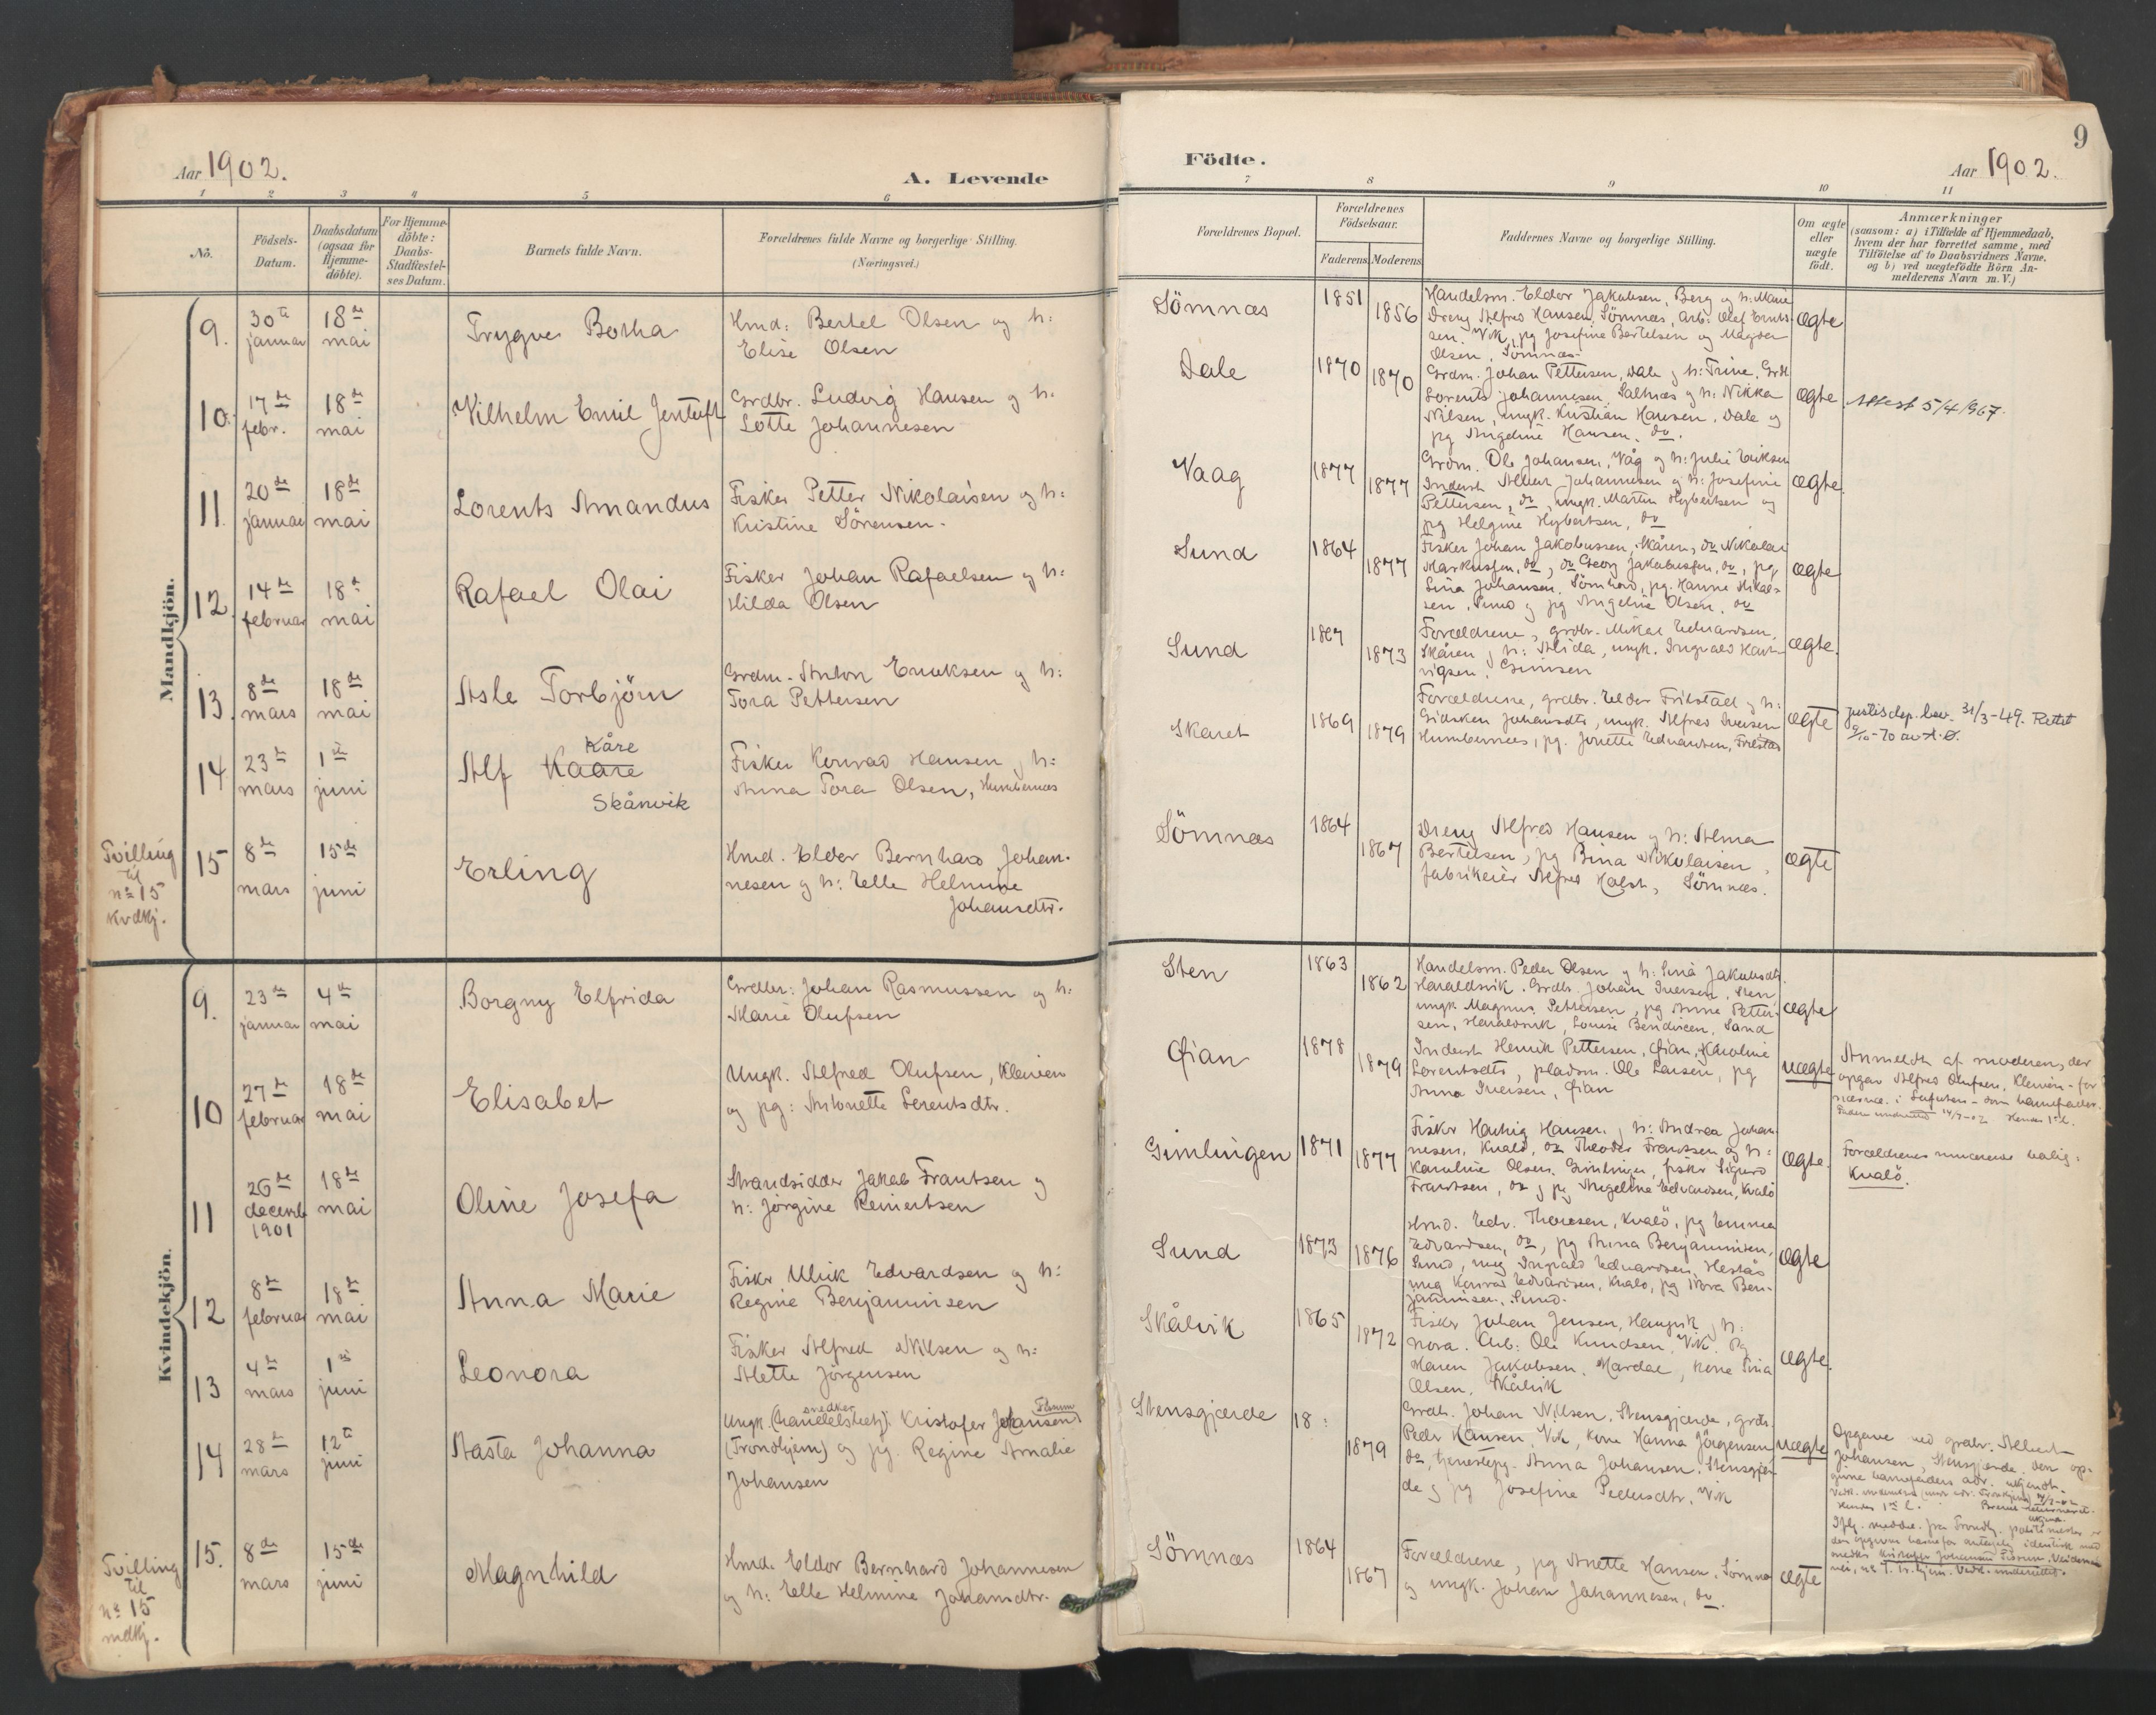 9
Aar 1902.
A. Levende
Födte.
Aar 1902.
1 2 3 4 5 6
7 8 9 10 11
No.
Födsels-
Datum.
Daabsdatum
(ogsaa for
Hjemme-
döbte).
For Hjemme-
döbte:
Daabs-
Stadfæstel-
ses Datum.
Barnets fulde Navn.
Forældrenes fulde Navne og borgerlige Stilling.
(Næringsvei.)
Forældrenes Bopæl.
Forældrenes
Födselsaar.
Faderens. Moderens.
Faddernes Navne og borgerlige Stilling.
Om ægte
eller
uægte
födt.
Anmærkninger
(saasom: a) i Tilfælde af Hjemmedaab,
hvem der har forrettet samme, med
Tilföielse af to Daabsvidners Navne.
og b) ved uægtefödte Börn An-
melderens Navn m.V.)
Mandkjön.
9. 30te januar
18de mai
Trygve Botha
Hmd: Bertel Olsen og h:
Elise Olsen
Sömnæs
1851 1856
Handelsm. Eldor Jakobsen, Berg og h: Marie
Dreng Alfred Hansen, Sömnæs, arb: Olef
Vik, pg Josefine Bertelsen og Magda
Olsen, Sömnæs.
ægte
10. 17de febr.
18de mai
Vilhelm Emil Jentoft
Grdbr. Ludvig Hansen og h:
Lotte Johannesen
Dale
1870 1870
Grdm. Johan Pettersen, Dale og h: Trine, Grdb
Lorents Johannesen, Salhus og h: Nikka
Nilsen, ungk. Kristian Hansen, Dale og
pg Angeline Hansen, do.
ægte
Attest 5/4 1967.
11. 20de januar
18de mai
Lorents Amandus
Fisker Petter Nikolaisen og h:
Kristine Sörensen.
Vaag
1877 1877
Grdm. Ole Johansen, Våg og h: Julie Eriksen
Inderst Albert Johannesen og h: Josefine
Pettersen, do, ungk. Martin Hybertsen og
pg Helgine Hybertsen, do
ægte.
12. 14de februar
18de mai
Rafael Olai
Fisker Johan Rafaelsen og h:
Hilda Olsen
Sund
1864 1877
Fisker Johan Jakobussen, Skåren, do Nikolai
Markussen, do, do Georg Jakobussen, do, pg
Lina Johansen, pg. Hanne Mikal-
sen, Sund og pg Angeline Olsen, do
ægte
13. 8de mars
18de mai
Asle Torbjörn
Grdm. Anton Enoksen og h:
Tora Pettersen
Sund
1867 1873
Forældrene, grdbr. Mikal Edvardsen,
Skåren og h: Alida, ungk. Ingvald Hart-
vigsen,
ægte.
14. 23de mars
1ste juni
Kåre
Alf Kaare
Skånvik
Fisker Konrad Hansen og h:
Anna Tora Olsen, Humbernæs
Skaret
1869 1879
Forældrene, grdbr. Eldor Frilstad og h:
Gidsken Johansdtr, ungk. Alfred Iversen
Humbernæs, pg. Jonette Edvardsen, Frilstad
ægte
Justisdep. bev. 31/3-49. Rettet
9/10-70 av A.Ø.
Tvilling
til
no 15
kvdkj.
15 8de mars
15de juni
Erling
Hmd. Eldor Bernhard Johan-
nesen og h: Elle Helmine
Johansdtr.
Sömnæs
1864 1867
Dreng Alfred Hansen og h: Alma
Bertelsen, pg Bina Nikolaisen,
fabrikeier Alfred Holst, Sömnæs.
ægte
Kvindekjön.
9. 23de januar
4de mai
Borgny Elfrida
Grdbr: Johan Rasmussen og h:
Marie Olufsen
Sten
1863 1862
Handelsm. Peder Olsen og h: Lina Jakobsdtr
Haraldsvik. Grdb. Johan Iversen, Sten,
ungk Magnus Pettersen, pg Anna Petter-
sen, Haraldsvik, Louise Bendixen, Sand
ægte
10 27de februar
18de mai
Elisabet
Ungk. Alfred Olufsen, Kleiven
og pg: Antonette Lorentsdtr.
Qian
1878 1879
Inderst Henrik Pettersen, Qian, Karoline
Lorentsdtr, pladsm. Ole Larsen, pg
Anna Iversen, Qian
uægte
Anmeldt af moderen, der
opgav Alfred Olufsen, Kleiven - for
nærvæ. i Lofoten - som barnefader.
11 26de decemb 1901
18de mai
Oline Josefa
Strandsidder Jakob Frantsen og
h: Jörgine Reinertsen
Gimlingen
1871 1877
Fisker Hartvig Hansen og h: Andrea Johan-
nesen, Kvalö, do Theodor Frantsen og h:
Karoline Olsen, Gimlingen, fisker Sigurd
Frantsen, do og pg Angeline Edvardsen, Kvalö
ægte.
Forældrenes nuværende bolig:
Kvalö.
12 8de februar
18de mai
Anna Marie
Fisker Ulrik Edvardsen og h:
Regine Benjaminsen
Sund
1873 1876
Hmd. Edv. Thoresen, Kvalö, pg Emma
Edvardsen, do, pg Anna Benjaminsen,
Sund, ung Ingvald Edvardsen, Hestås
ung Konrad Edvardsen, Kvalö, pg Nora Ben-
jaminsen, Sund.
ægte
13 4de mars
1ste juni
Leonora
Fisker Alfred Nilsen og h:
Alette Jörgensen
Skålvik
1865 1872
Fisker Johan Jensen, og h:
Nora. Arb: Ole Knudsen, Vik. Pg
Maren Jakobsen, Mardal, kone Lina
Olsen, Skålvik
ægte.
14 28de mars
12te juni
Aasta Johanna
snedker Flemm
Ungk. (handelsbetj) Kristofer Johansen
(Trondhjem) og pg. Regine Amalie
Johansen
Stensgjærde
18: 1879
Grdb. Johan Nilsen, Stensgjærde, grdb.
Peder Hansen, Vik, kone Hanna Jörgensen
do, tjenestepg. Anna Johansen, Stensgjær-
de og pg Josefine Pedersdtr. Vik
uægte
Opgave ved grdbr. Albert
Johansen, Stensgjærde. Den op-
givne barnefaders adr. ukjendt.
Tvilling
til
no 15
mdkj.
15. 8de mars
15de juni
Magnhild
Hmd. Eldor Bernhard Johannesen
og h: Elle Helmine Johansdtr.
Sömnæs
1864 1867
Forældrene, pg Anette Hansen, Sömnæs
og ungk. Johan Johannesen, do.
ægte